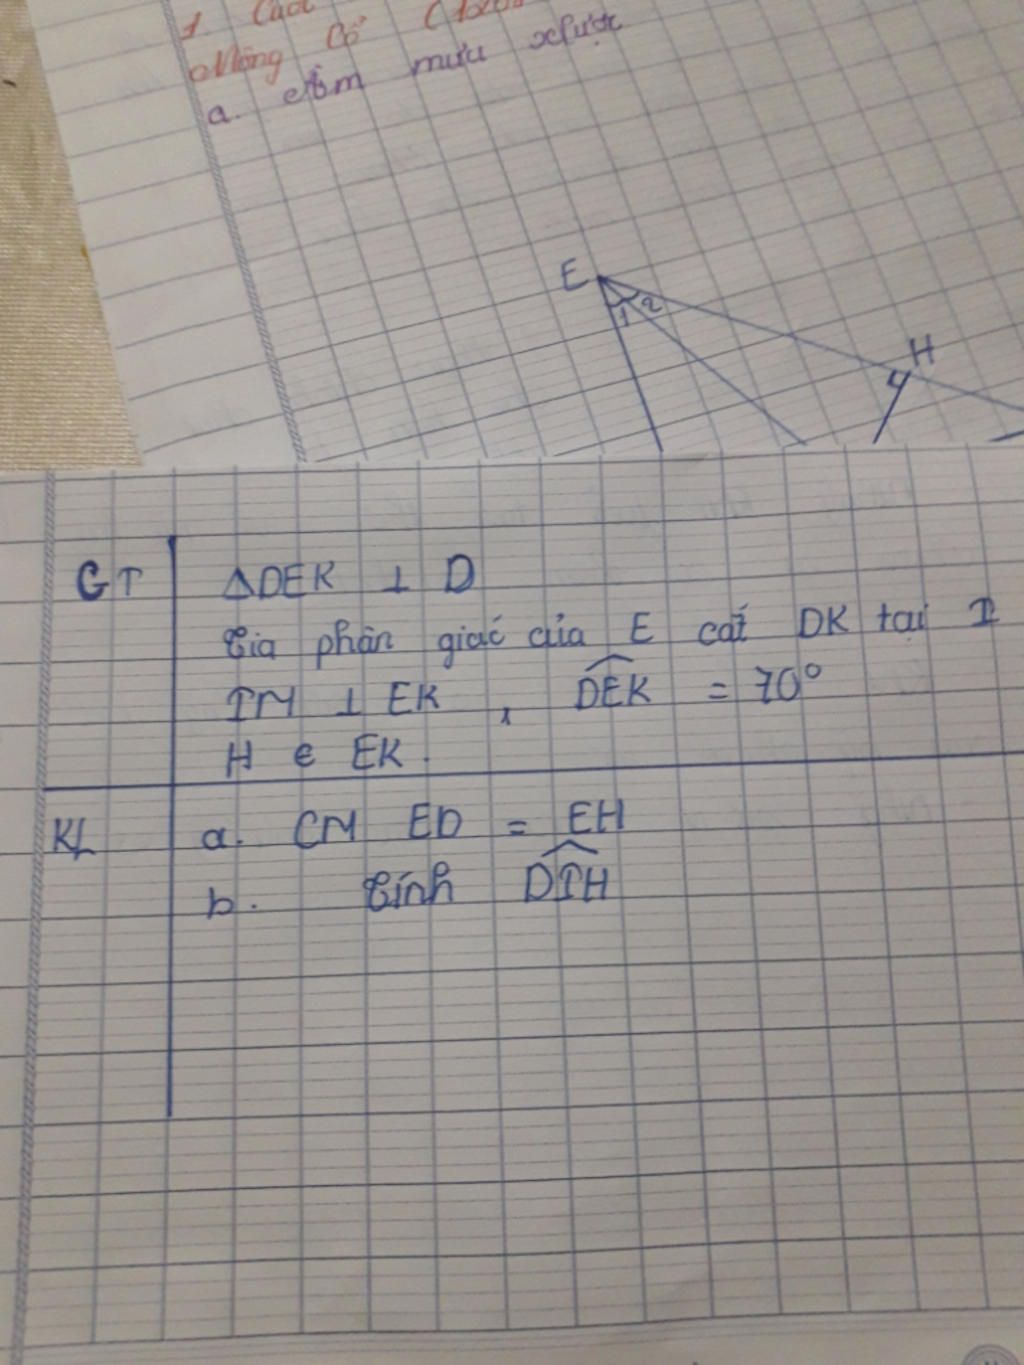 Mông Cổ
a. Âm mưu xlược
E
1 2
H
GT ΔDEK ⊥ D
Tia phân giác của E cắt DK tại I
IM ⊥ EK, DEK = 70°
H e EK.
KL a. CM ED = EH
b. Tính DIH